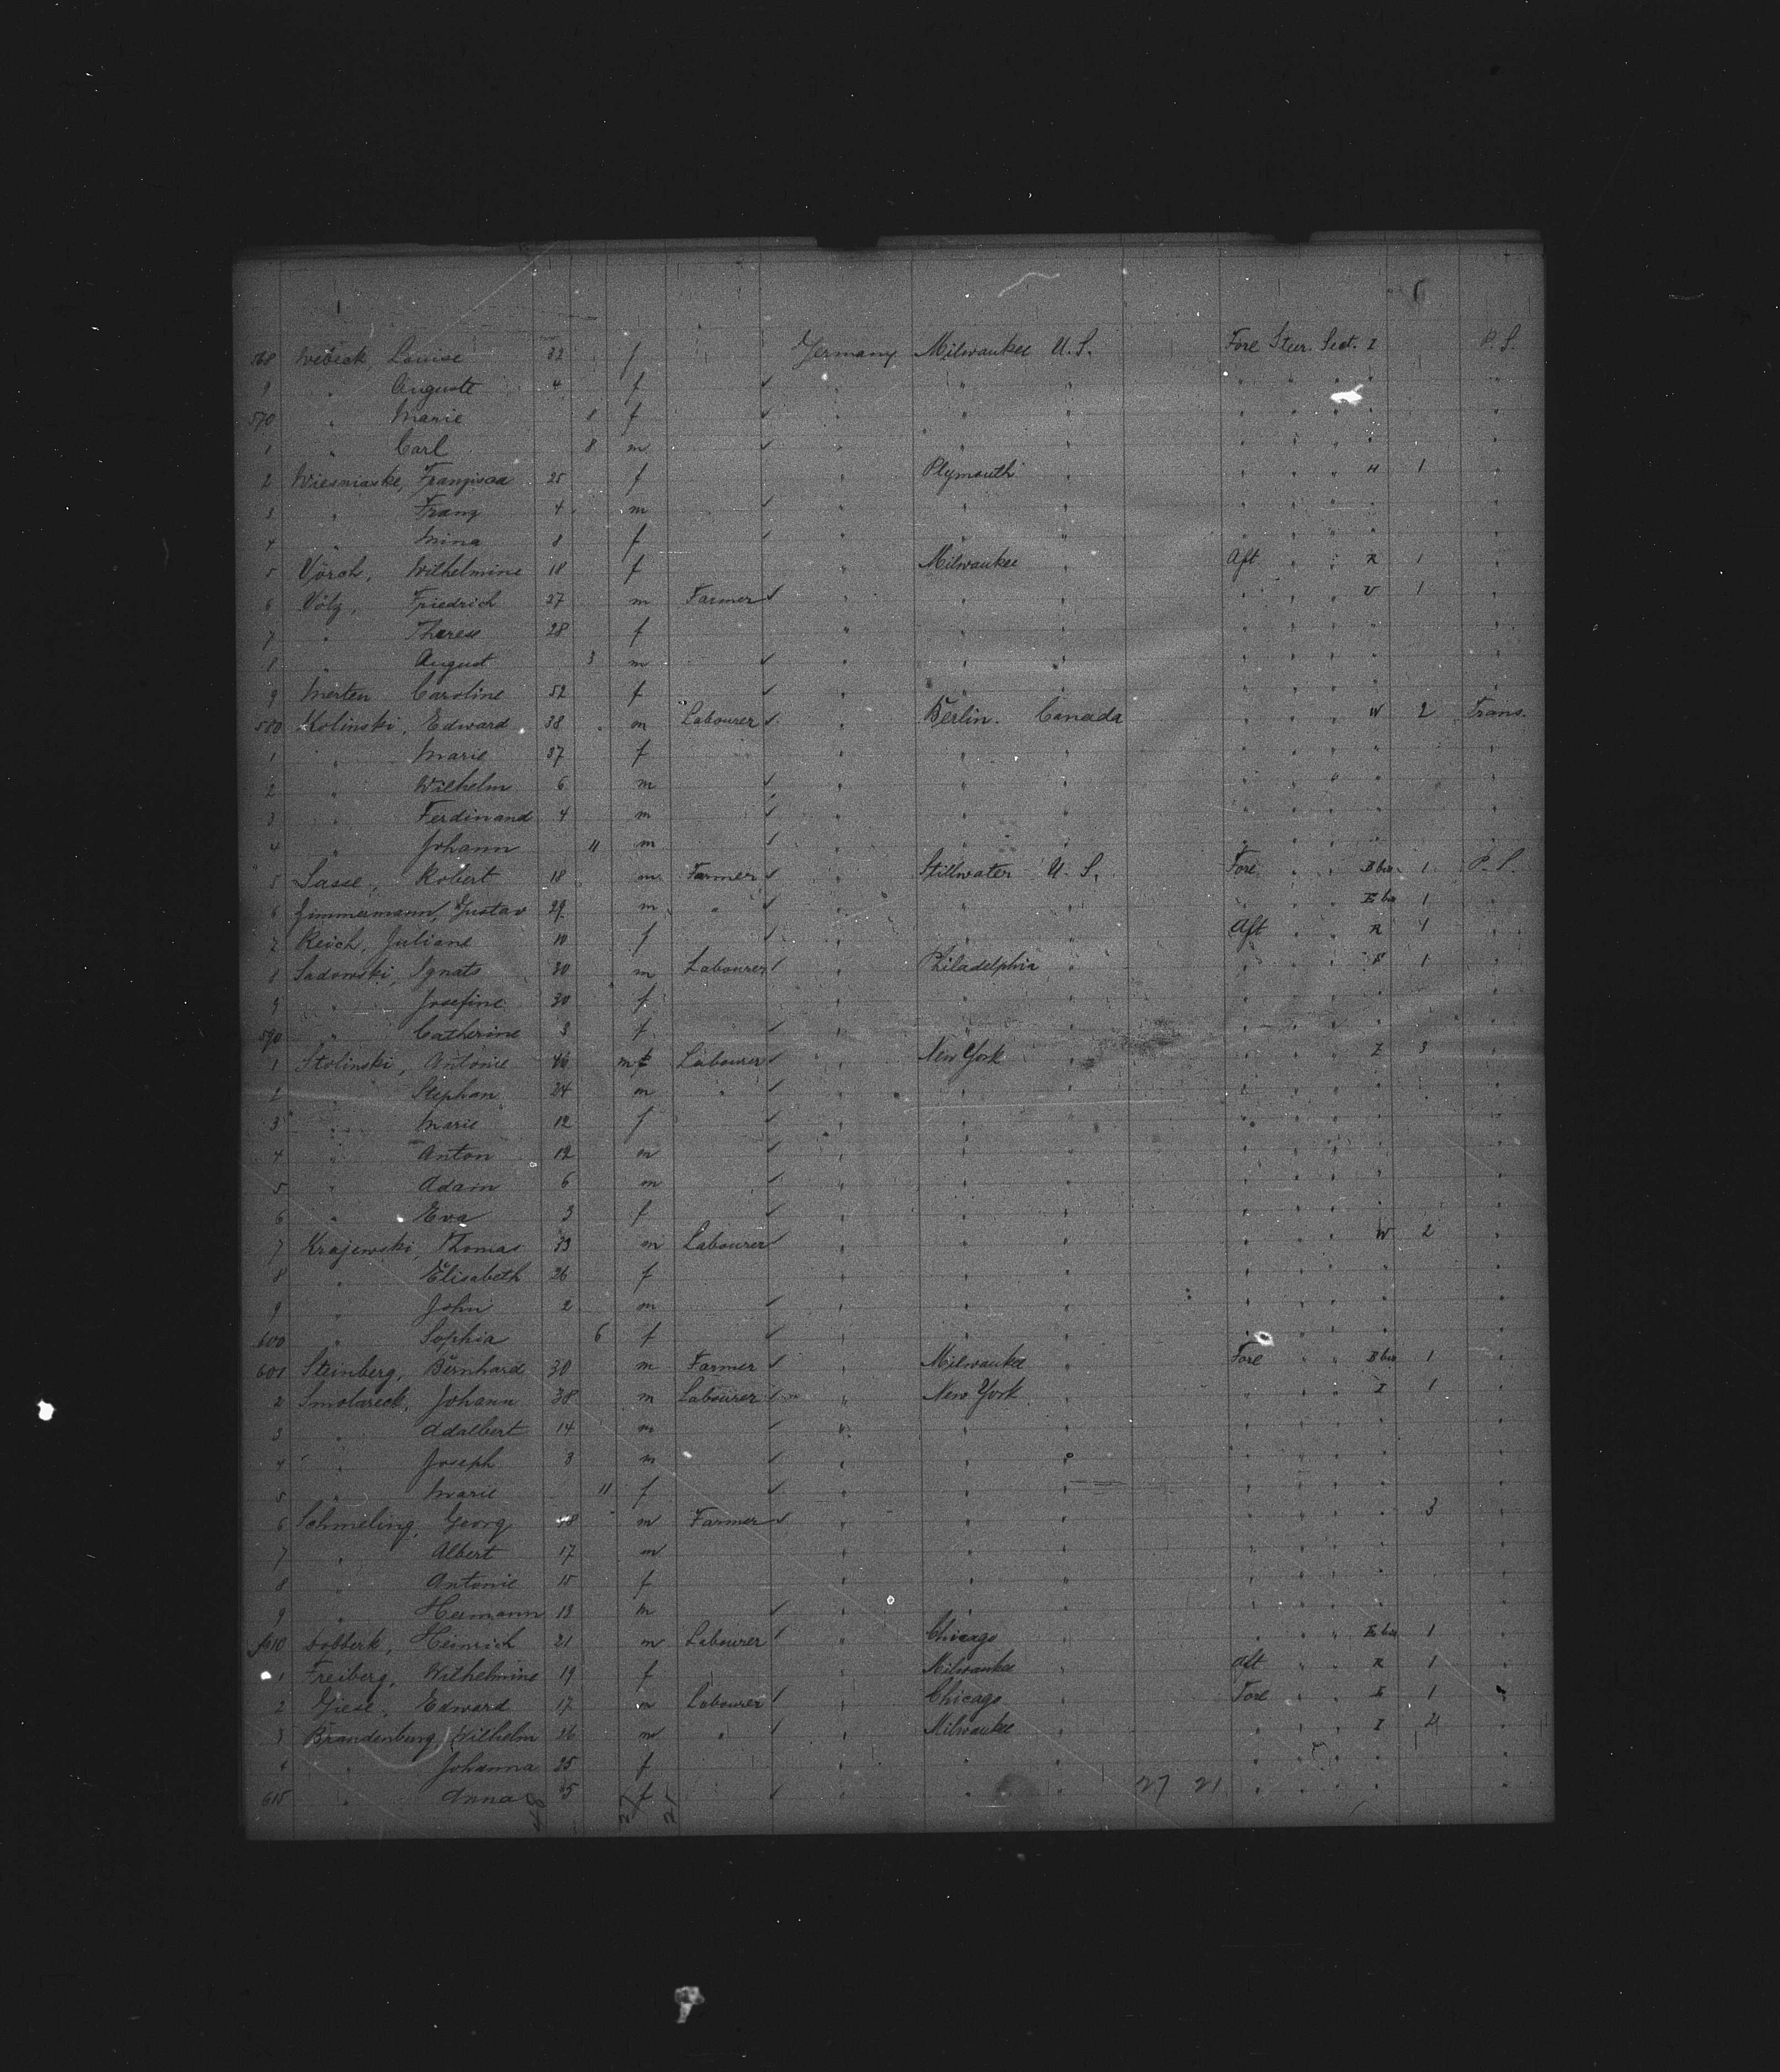 568 Webeck, Louise 32 f Germany Milwaukee U.S. Fore Steer. Sect. I P.S.
9 " Auguste 4 f ✓ " " " " " " " "
570 " Marie f ✓ " " " " " " " "
1 " Carl 8 m ✓ " " " " " " " "
2 Wiesniaske, Franzisca 25 f Plymouth " " " " H 1 "
3 " Franz 4 m ✓ " " " " " " " "
4 " Mina f ✓ " " " " " " " "
5 Vörch, Wilhelmine 18 f " Milwaukee " Aft " " R 1 "
6 Völz, Friedrich 27 m Farmer ✓ " " " " " " V 1 "
7 " Therese 28 f " " " " " " " "
8 " August 3 m ✓ " " " " " " " "
9 Merten Caroline 52 f ✓ " " " " " " " "
580 Kolinski, Edward 38 m Labourer ✓ " Berlin. Canada " " " W 2 Trans.
1 " Marie 37 f " " " " " " " "
2 " Wilhelm 6 m ✓ " " " " " " " "
3 " Ferdinand 4 m ✓ " " " " " " " "
4 " Johann 11 m ✓ " " " " " " " "
5 Sasse, Robert 18 m Farmer ✓ " Stillwater U.S. Fore " " 1 P.S.
6 Zimmermann, Gustav 29 m " ✓ " " " " " " 1 "
7 Reich, Juliane 10 f ✓ " " " Aft " " R 1 "
8 Sadowski, Ignats 30 m Labourer ✓ " Philadelphia " " " " 1 "
9 " Josefine 30 f " " " " " " " "
590 " Catherine 3 f ✓ " " " " " " " "
1 Stolinski, Antonie m Labourer ✓ " New York " " " " Z 3 "
2 " Stephan 24 m " ✓ " " " " " " " "
3 " Marie 12 f ✓ " " " " " " " "
4 " Anton 12 m ✓ " " " " " " " "
5 " Adam 6 m ✓ " " " " " " " "
6 " Eva 3 f ✓ " " " " " " " "
7 Krajewski, Thomas 33 m Labourer ✓ " " " " " " W 2 "
8 " Elisabeth 26 f " " " " " " " "
9 " John 2 m ✓ " " " " " " " "
600 " Sophia 6 f ✓ " " " " " " " "
601 Steinberg, Bernhard 30 m Farmer ✓ " Milwaukee " Fore " " 1 "
2 Smolareck, Johann 38 m Labourer ✓ " New York " " " " I 1 "
3 " Adalbert 14 m ✓ " " " " " " " "
4 " Joseph 3 m ✓ " " " " " " " "
5 " Marie 11 f ✓ " " " " " " " "
6 Schmeling, Georg m Farmer ✓ " " " " " " " 3 "
7 " Albert 17 m " " " " " " " "
8 " Antonie 15 f " " " " " " " "
9 " Hermann 13 m ✓ " " " " " " " "
610 Dobberk, Heinrich 21 m Labourer ✓ " Chicago " " " " 1 "
1 Freiberg, Wilhelmine 19 f " Milwaukee " Aft " " R 1 "
2 Giese, Edward 17 m Labourer ✓ " Chicago " Fore " " 1 "
3 Brandenburg, Wilhelm 26 m " ✓ " Milwaukee " " " " I "
4 " Johanna 25 f " " " " " " " "
615 " Anna f ✓ " " " 27 21 " " " " "
48 27 21